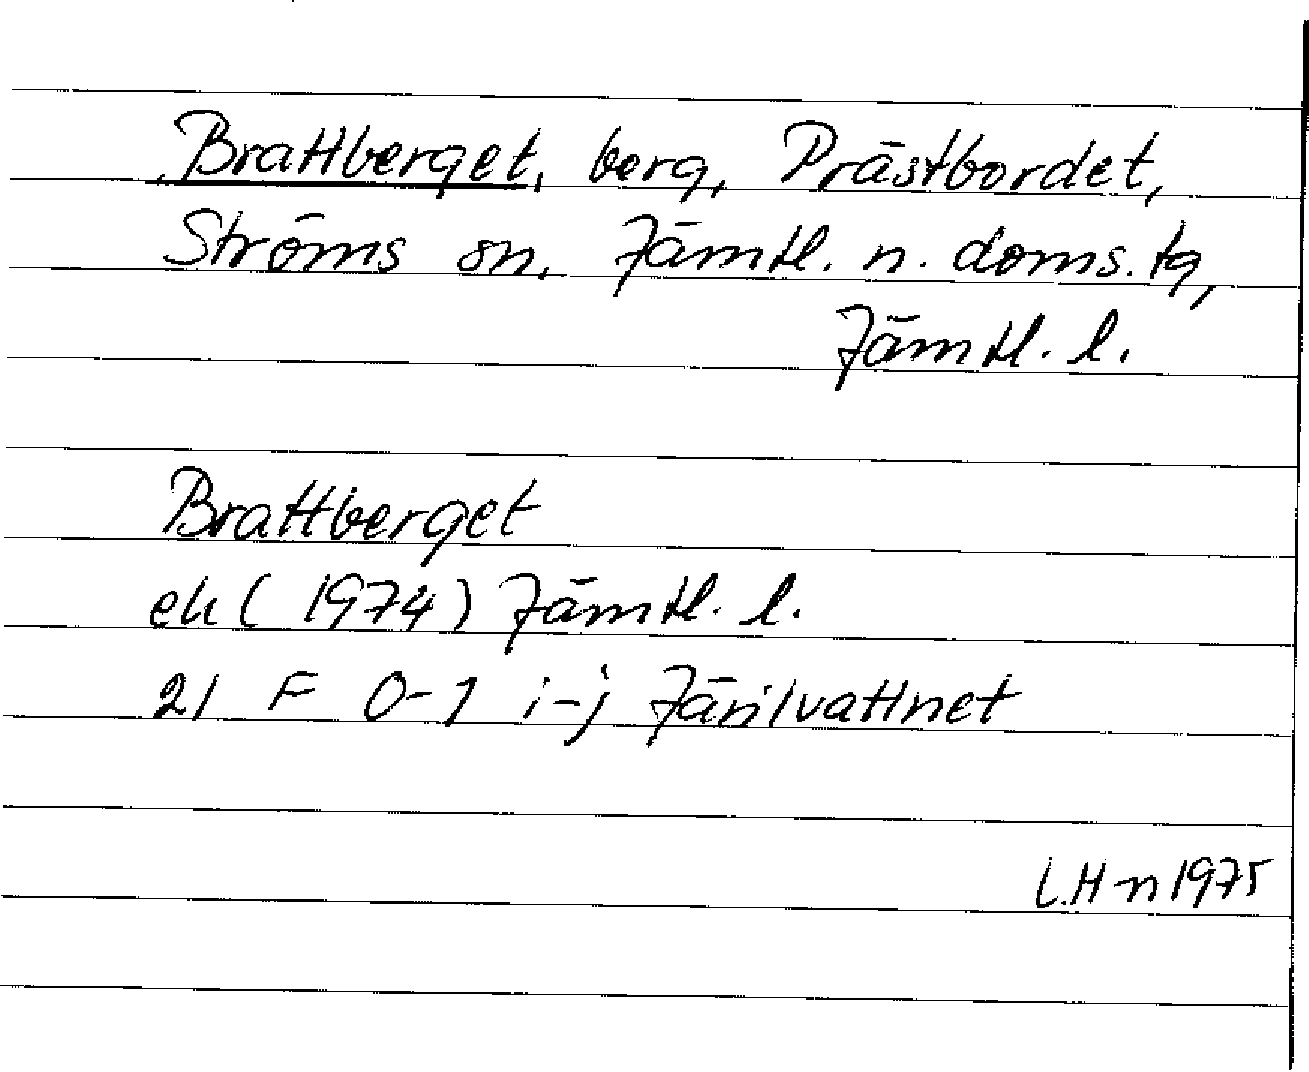 Brattberget, berg, Prästbordet,
Ströms sn, Jämtl. n. doms. tg,
Jämtl. l.
Brattberget
ek (1974) Jämtl. l.
21 F 0-1 i-j Järilvattnet
L.H-n 1975